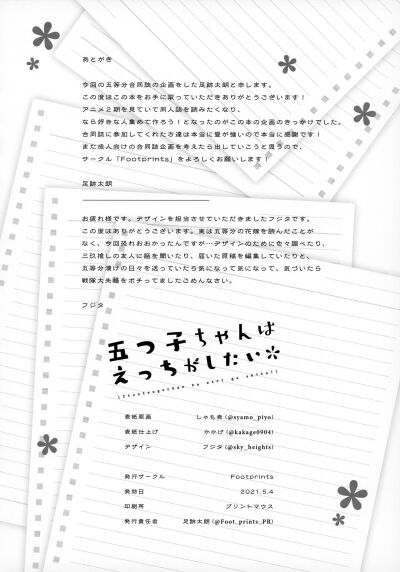 あとがき
今回の五等分合同誌の企画をした足跡太朗と申します。
この度はこの本をお手に取っていただきありがとうございます！
アニメ2期を見ていて同人誌を読みたくなり、
なら好きな人集めて作ろう！となったのがこの本の企画のきっかけでした。
合同誌に参加してくれた方達は本当に愛が強いので本当に感謝です！
また成人向けの合同誌企画を考えたら出していこうと思うので、
サークル「Footprints」をよろしくお願いします！
足跡太朗
お疲れ様です。デザインを担当させていただきましたフジタです。
この度はありがとうございます。実は五等分の花嫁を読んだことが
なく、今回恐れおおかったんですが…デザインのために色々調べたり、
三玖推しの友人に話を聞いたり、届いた原稿を編集していたりと、
五等分漬けの日々を送っていたら気になって気になって、気づいたら
戦隊大失格をポチってましたごめんなさい。
フジタ
五つ子ちゃんは
えっちがしたい
[Itsutsugochan ha etti ga shitai]
表紙原画 しゃも煮 (@syamo_piyo)
表紙仕上げ かかげ (@kakage0904)
デザイン フジタ (@sky_heights)
発行サークル Footprints
発効日 2021.5.4
印刷所 プリントマウス
発行責任者 足跡太朗 (@Foot_prints_PR)